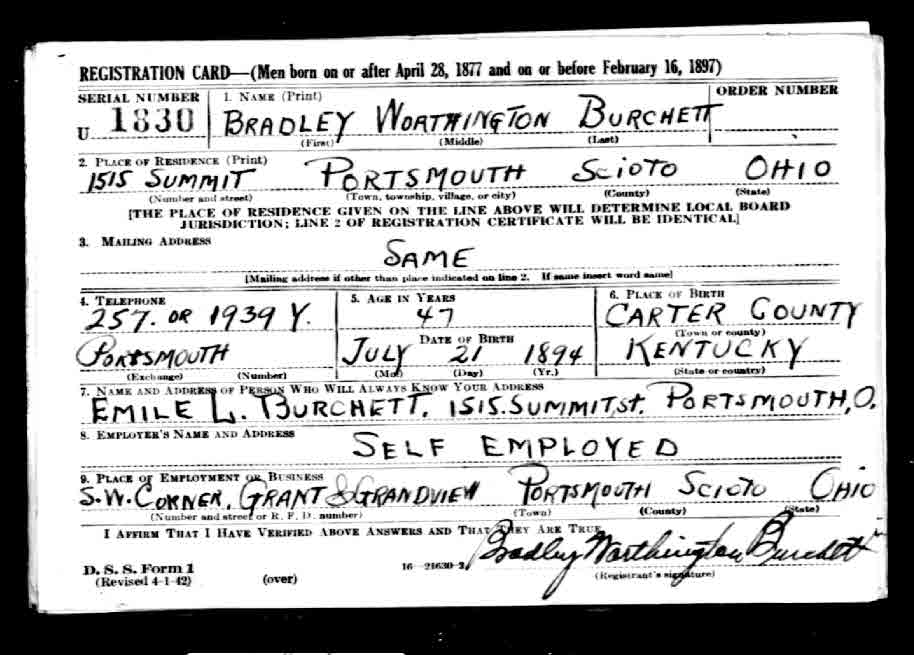 REGISTRATION CARD—(Men born on or after April 28, 1877 and on or before February 16, 1897)
SERIAL NUMBER 1. NAME (Print) ORDER NUMBER
U 1830 BRADLEY WORTHINGTON BURCHETT
(First) (Middle) (Last)
2. PLACE OF RESIDENCE (Print)
1515 SUMMIT PORTSMOUTH SCIOTO OHIO
(Number and street) (Town, township, village, or city) (County) (State)
[THE PLACE OF RESIDENCE GIVEN ON THE LINE ABOVE WILL DETERMINE LOCAL BOARD
JURISDICTION; LINE 2 OF REGISTRATION CERTIFICATE WILL BE IDENTICAL]
3. MAILING ADDRESS
SAME
[Mailing address if other than place indicated on line 2. If same insert word same]
4. TELEPHONE 5. AGE IN YEARS 6. PLACE OF BIRTH
257. OR 1939 Y. 47 CARTER COUNTY
DATE OF BIRTH (Town or county)
PORTSMOUTH JULY 21 1894 KENTUCKY
(Exchange) (Number) (Mo.) (Day) (Yr.) (State or country)
7. NAME AND ADDRESS OF PERSON WHO WILL ALWAYS KNOW YOUR ADDRESS
EMILE L. BURCHETT. 1515. SUMMIT, St. PORTSMOUTH, O.
8. EMPLOYER'S NAME AND ADDRESS
SELF EMPLOYED
9. PLACE OF EMPLOYMENT OR BUSINESS
S.W. CORNER, GRANT & GRANDVIEW PORTSMOUTH SCIOTO OHIO
(Number and street or R. F. D. number) (Town) (County) (State)
I AFFIRM THAT I HAVE VERIFIED ABOVE ANSWERS AND THAT THEY ARE TRUE.
Bradley Worthington Burchett
D. S. S. Form 1
(Revised 4-1-42) (over) 16—21630-2 (Registrant's signature)